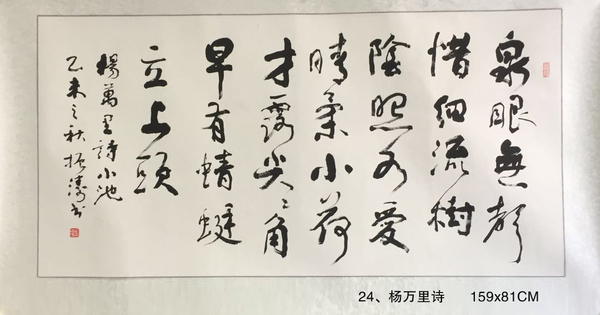 泉眼無聲
惜細流樹
陰照水愛
晴柔小荷
才露尖々角
早有蜻蜓
立上頭
楊萬里詩小池
乙未之秋振濤书
24、杨万里诗 159x81CM